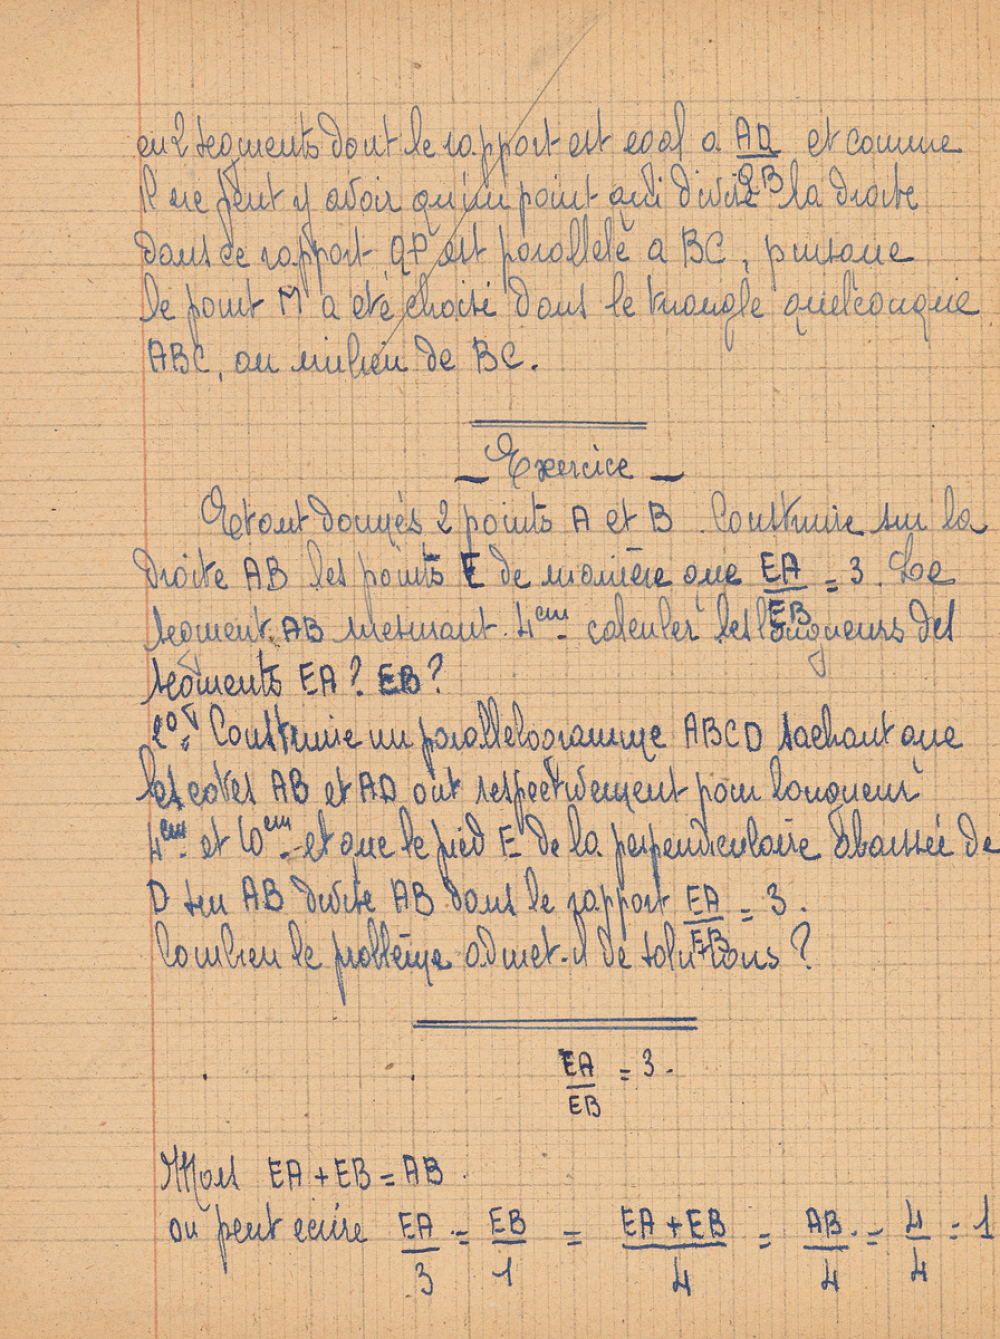 en 2 segments dont le rapport est egal a AQ/QB et comme
il ne peut y avoir qu'un point qui divise la droite
dans ce rapport QP est parallele a BC, puisque
le point M a été choisi dans le triangle quelconque
ABC, au milieu de BC.
_ Exercice _
Etant donnés 2 points A et B. Construire sur la
droite AB les points E de manière que EA/EB = 3. Le
segment AB mesurant 4cm calculer les longueurs des
segments EA? EB?
2º. Construire un parallelogramme ABCD sachant que
les cotes AB et AD ont respectivement pour longueur
4cm et 10cm et que le pied E de la perpendiculaire abaissée de
D sur AB divise AB dans le rapport EA/EB = 3.
Combien le problème admet-il de solutions?
EA/EB = 3.
Mais EA + EB = AB
on peut ecrire EA/3 = EB/1 = EA + EB/4 = AB/4 = 4/4 = 1